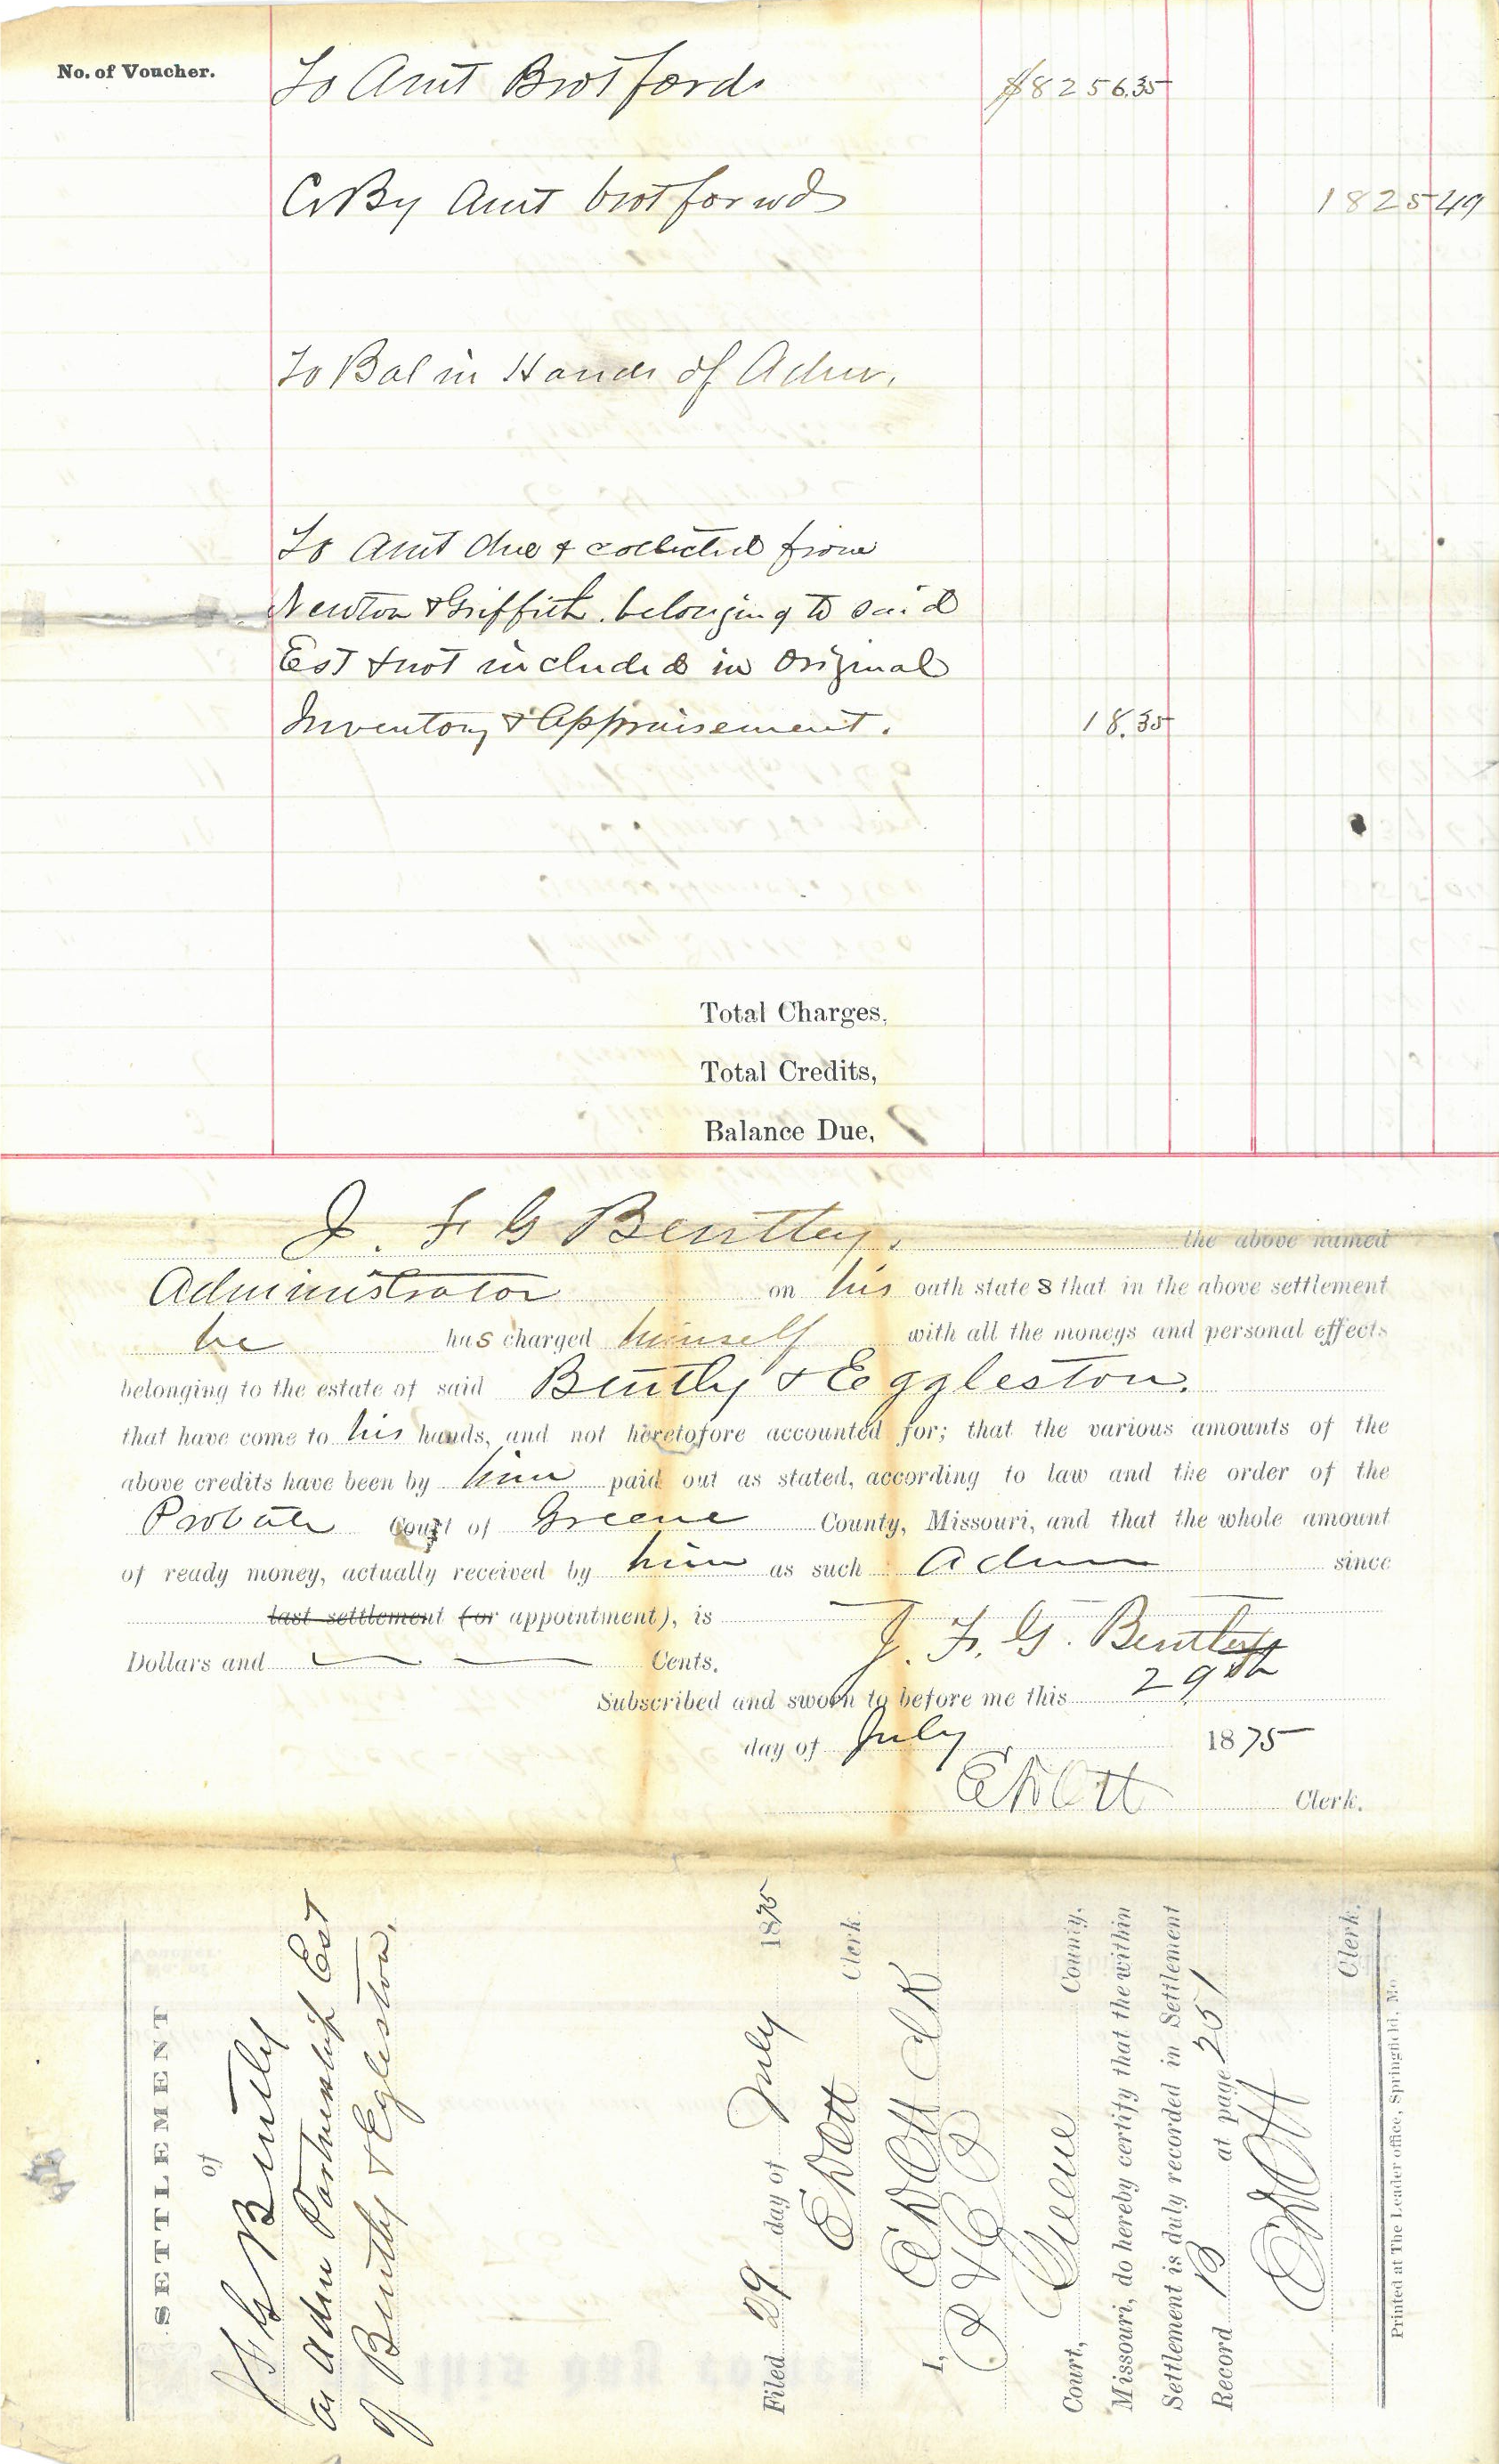 No. of Voucher.
To Amt Brot ford. $8256.35
Cr By Amt brot forwd 1825 49
To Bal in Hands of Admr.
To Amt due & collected from
Newton & Griffith. belonging to said
Est & not included in Original
Inventory & Appraisement. 18.35
Total Charges,
Total Credits,
Balance Due,
J. F. G Bentley. the above named
Administrator on his oath state s that in the above settlement
he has charged himself with all the moneys and personal effects
belonging to the estate of said Bently & Eggleston.
that have come to his hands, and not heretofore accounted for; that the various amounts of the
above credits have been by him paid out as stated, according to law and the order of the
Probate Court of Greene County, Missouri, and that the whole amount
of ready money, actually received by him as such Adm since
last settlement (or appointment), is
Dollars and Cents. J. F. G. Bentley
Subscribed and sworn to before me this 29th
day of July 1875
E D Ott Clerk.
SETTLEMENT
of
J F G Bently
as Adm Partnership Est
of Bently & Egleston.
Filed 29 day of July 1875
E D Ott Clerk.
I, E D Ott Clk
Greene
Court, County,
Missouri, do hereby certify that the within
Settlement is duly recorded in Settlement
Record B at page 251
E D Ott
Clerk.
Printed at The Leader office, Springfield, Mo.